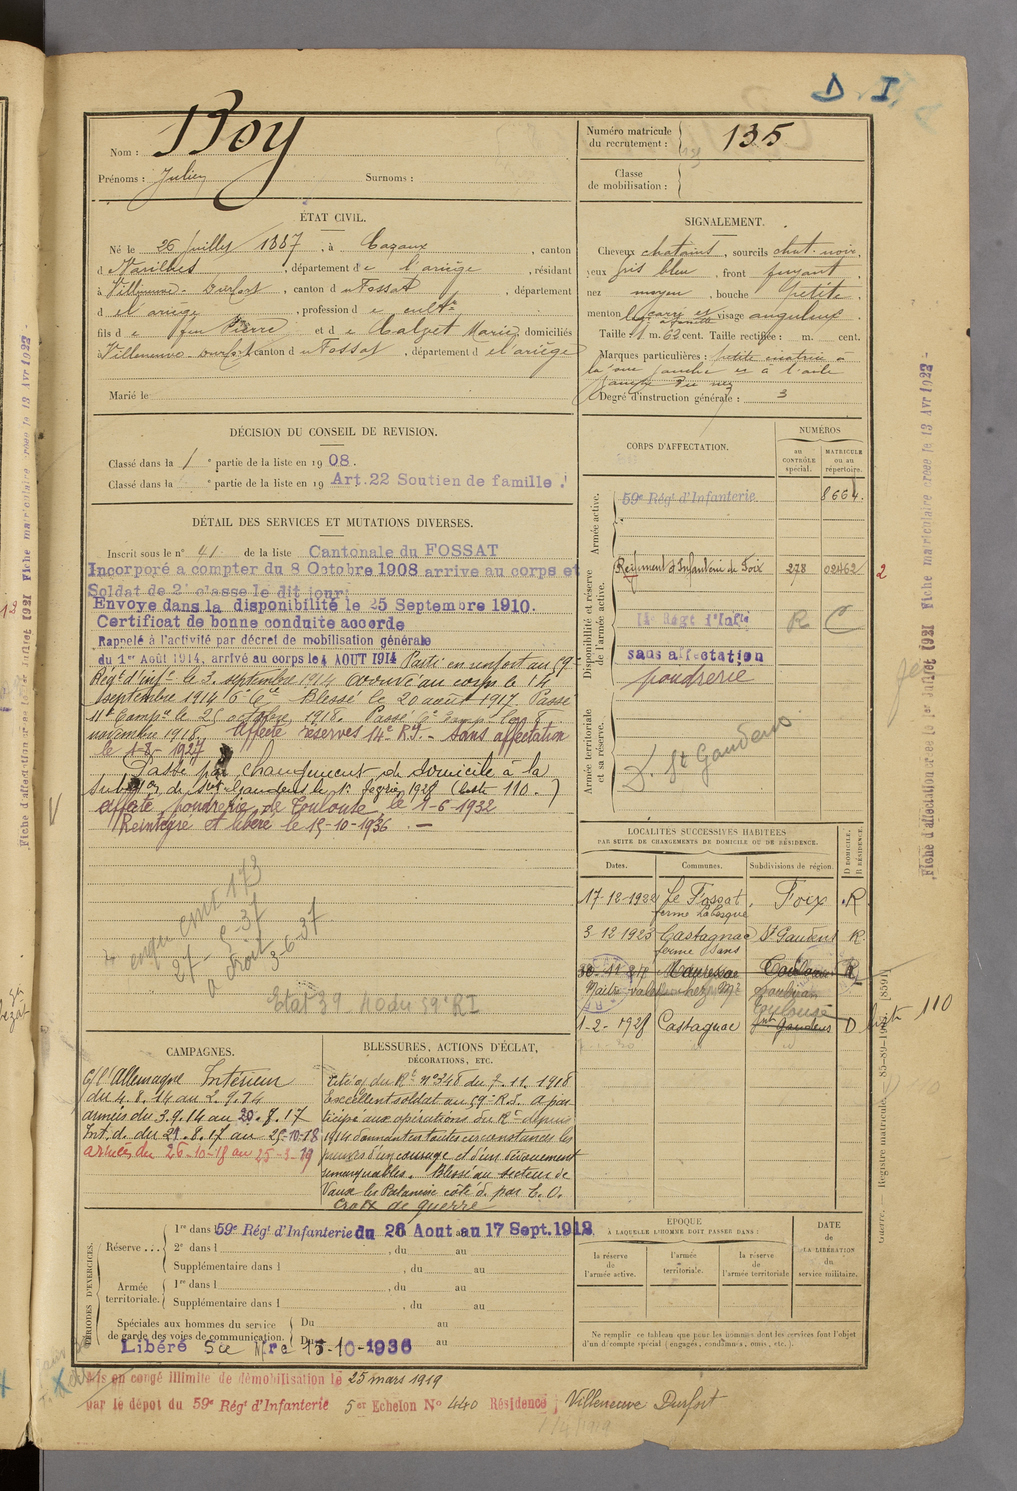 D. I
Nom : Boy
Prénoms : Julien Surnoms :
Numéro matricule
du recrutement : 135
Classe
de mobilisation :
ÉTAT CIVIL.
Né le 26 Juillet 1887, à Cazaux, canton
d Varilhes, département de l'ariège, résidant
à Villeneuve-Durfort, canton du Fossat, département
d el'ariège, profession de cultr
fils de feu Pierre et de Calzet Marie, domiciliés
à Villeneuve-Durfort canton du Fossat, département d el'ariège
Marié le
SIGNALEMENT.
Cheveux chatains, sourcils chat. noir,
yeux gris bleu, front fuyant,
nez moyen, bouche petite,
menton visage anguleux.
Taille : 1 m. 62 cent. Taille rectifiée : m. cent.
Marques particulières : petite cicatrice à
la joue gauche et à l'aile
gauche du nez
Degré d'instruction générale : 3
DÉCISION DU CONSEIL DE REVISION.
Classé dans la 1e partie de la liste en 1908.
Classé dans la e partie de la liste en 19 Art. 22 Soutien de famille !
DÉTAIL DES SERVICES ET MUTATIONS DIVERSES.
Inscrit sous le n° 41 de la liste Cantonale du FOSSAT
Incorporé a compter du 8 Octobre 1908 arrive au corps et
Soldat de 2e classe le dit jour.
Envoye dans la disponibilité le 25 Septembre 1910.
Certificat de bonne conduite accorde
Rappelé à l'activité par décret de mobilisation générale
du 1er Août 1914, arrivé au corps le 4 AOUT 1914 Parti en renfort au 59e
Régt d'infie le 3 septembre 1914 arrivé au corps le 14
septembre 1914 6e Cie Blessé le 20 août 1917. Passé
11e Campe le 25 octobre 1918. Passé 6e Compie le 8
novembre 1918. Affecté réserves 14e R.I. - sans affectation
le 1-8-1927
Passé par changement de domicile à la
subdon de St Gaudens le 1er Février 1928 (liste 110.)
affecté poudrerie de Toulouse le 1-6-1932
Reintégré et libéré le 15-10-1936. —
27-5-37
3-6-37
Etat 39 40 du 59e RI
CORPS D'AFFECTATION.
NUMÉROS
au
CONTRÔLE
spécial.
MATRICULE
ou au
répertoire.
Armée active.
59e Régt d'Infanterie 8664.
Disponibilité et réserve
de l'armée active.
Régiment d'Infanterie de Foix 278 02462 2
14e Régt d'Infie R C
sans affectation
poudrerie
Armée territoriale
et sa réserve.
D. St Gaudens
LOCALITÉS SUCCESSIVES HABITÉES
PAR SUITE DE CHANGEMENTS DE DOMICILE OU DE RÉSIDENCE.
Dates. Communes. Subdivisions de région. D DOMICILE. R RÉSIDENCE.
17-12-1922 Le Fossat Foix R
3-12-1923 Castagnac St Gaudens R
Toulouse
1-2-1928 Castagnac St Gaudens D liste 110
CAMPAGNES.
C/ l'Allemagne Intérieur
du 4.8.14 au 2.9.14
armées du 3.9.14 au 20.8.17
Int. d. du 21.8.17 au 25-10-18
armées du 26-10-18 au 25-3-19
BLESSURES, ACTIONS D'ÉCLAT,
DÉCORATIONS, ETC.
Cité o/ du Rt n° 348 du 7.11.1918
Excellent soldat au 59e R.I. A par
ticipé aux opérations du Rt depuis
1914 donnant en toutes circonstances les
preuves d'un courage et d'un dévouement
remarquables. Blessé au secteur de
Vaux les Palameix côté d. par E.O.
Croix de guerre
PÉRIODES D'EXERCICES.
Réserve... 1re dans l 59e Régt d'Infanterie du 26 Aout au 17 Sept. 1912
2e dans l , du au
Supplémentaire dans l , du au
Armée
territoriale. 1re dans l , du au
Supplémentaire dans l , du au
Spéciales aux hommes du service
de garde des voies de communication. Du au
Du au
Libéré Sce Mre 15-10-1936
ÉPOQUE
À LAQUELLE L'HOMME DOIT PASSER DANS :
la réserve
de
l'armée active.
l'armée
territoriale.
la réserve
de
l'armée territoriale
DATE
de
LA LIBÉRATION
du
service militaire.
Ne remplir ce tableau que pour les hommes dont les services font l'objet
d'un décompte spécial (engagés, condamnés, omis, etc.).
Mis en congé illimité de démobilisation le 25 mars 1919
par le dépot du 59e Régt d'Infanterie 5er Echelon N° 440 Résidence : Villeneuve Durfort
Fiche d'affectation créée le 1er Juillet 1921 Fiche matriculaire créée le 13 Avr 1922
Registre matricule.